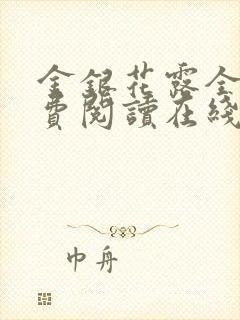 金銀花露全
費閱讀在綫
巾舟